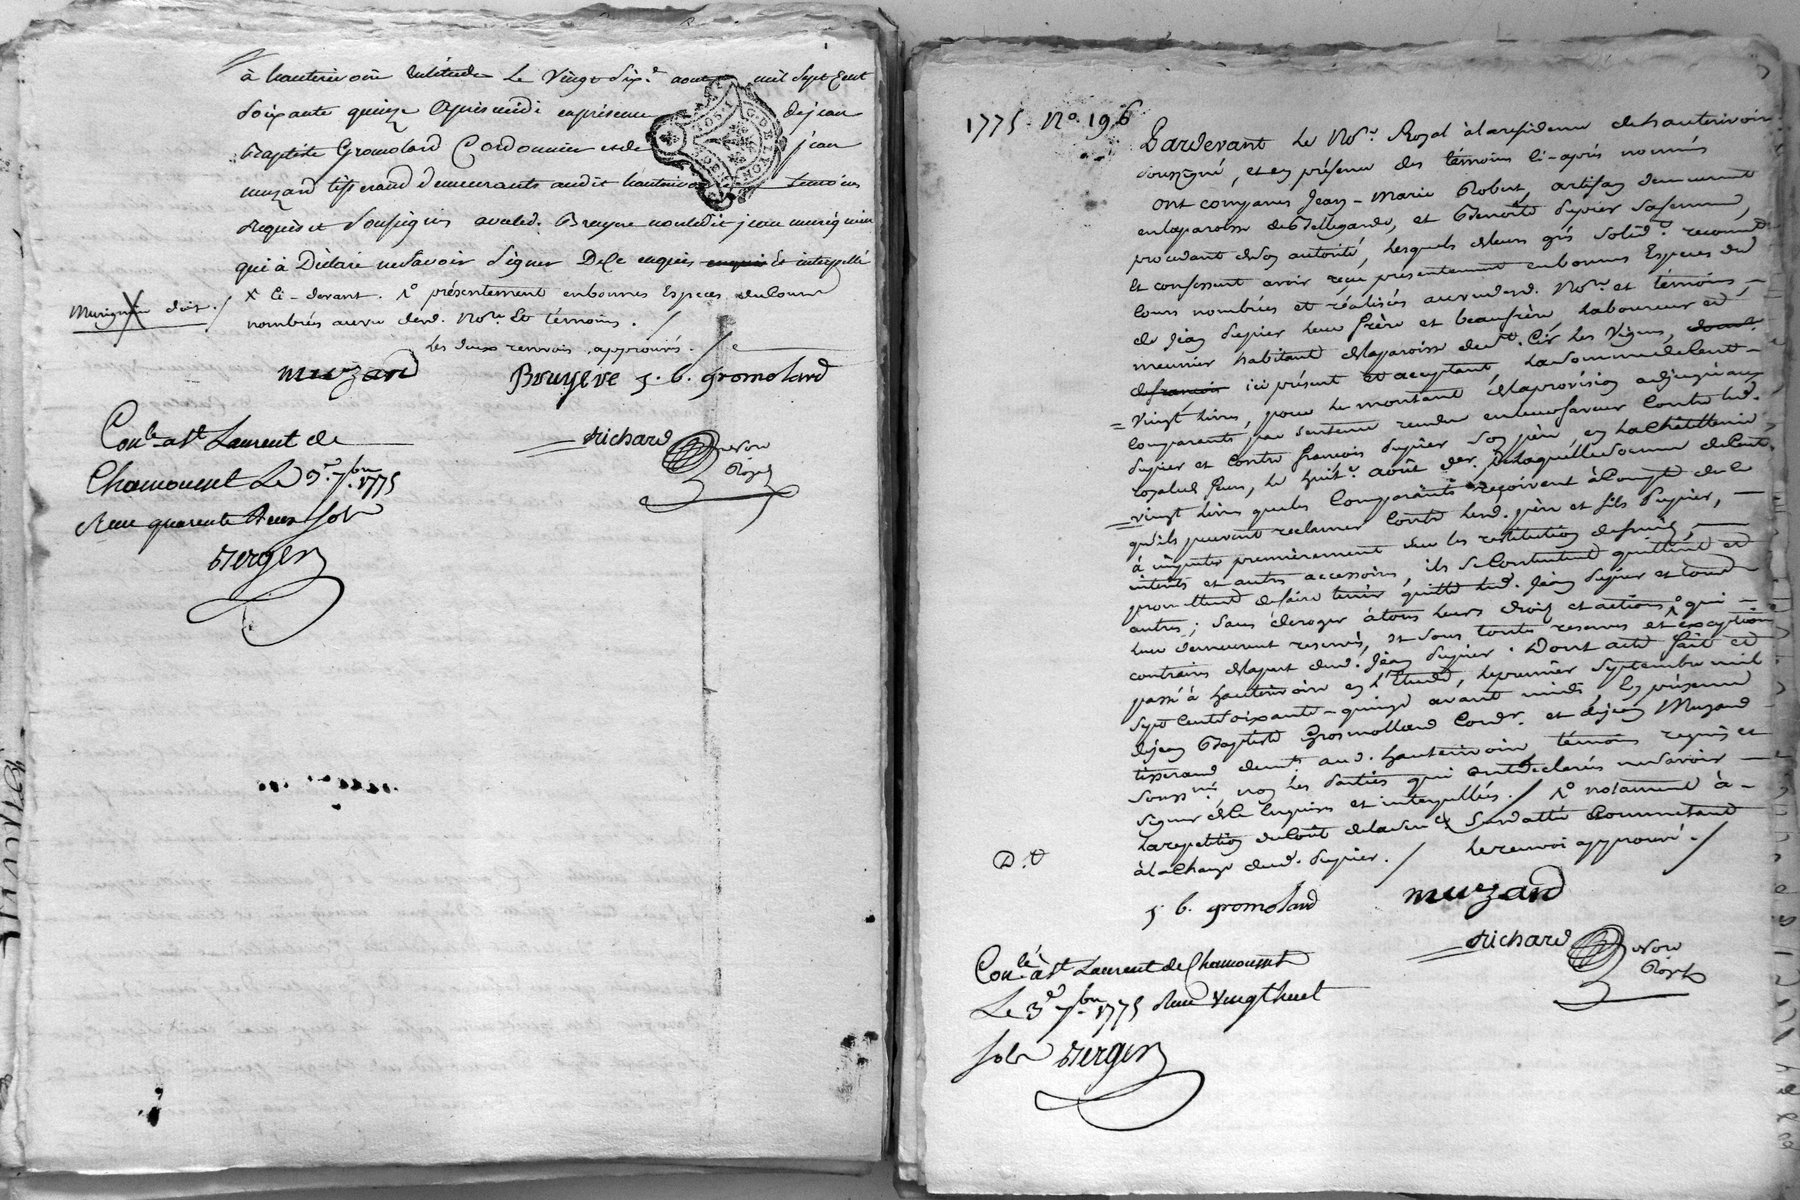 à hauterivoire Estétude Le Vingt Six.e aout mil Sept Cent
Soixante quinze Après midi en présence de jean
Baptiste Gromolard Cordonnier et de jean
muzard tisserand demeurants audit hauterivoire temoins
Requis et Soussignés avec led. Bruyere non ledit jean
qui à Déclaré ne Savoir Signer De Ce enquis et interpellé
X Ci-devant. 1º présentement en bonnes Especes du Cours
doit. /
nombrés au vu dud. No.re Et témoins. /
Les deux renvois approuvés. /
muzard Bruyére j. b. gromolard
Con.lé a St Laurent de
Chamousset Le 3.e 7.bre 1775
Reçu quarante deux sols
Berger
Richard No.re Royal
1775. Nº. 196
Pardevant Le No.re Royal à la residence de hauterivoire
soussigné, et en présence des témoins Ci-après nommés
ont comparus Jean-Marie Robert, artisan demeurant
en la paroisse de Bellegarde, et Benoîte Dupier Sa femme,
procedant de Son autorité, Lesquels de leurs grés Solid.t reconnoissent
Et confessent avoir reçu présentement en bonnes Especes du
Cours nombrées et réalisées au vu dud. No.re et témoins,
de Jean Dupier leur frère et beaufrère, laboureur et
meunier habitant de la paroisse de St. Cir Les Vignes,
ici présent et acceptant, La Somme de Cent
Vingt Livres, pour le montant de la provision adjugée aux
comparants par Sentence rendue en leur faveur Contre led.
Dupier et Contre francois Dupier Son père, en la Châtellenie
royale de feurs, le huit.e août der. de Laquelle Somme de Cent
vingt Livres que les Comparants reçoivent à Compte de Ce
qu'ils peuvent reclamer Contre lesd. père et fils Dupier,
à imputer premièrement Sur les restitution de fruits,
interêts et autres accessoires, ils Se Contentent quittent et
promettent de faire tenir quitte led. Jean Dupier et tous
autres; Sans déroger à tous leurs droits et actions 1º qui
leur demeurent reservés, et Sous toutes reserves et exceptions
contraires de la part dud. Jean Dupier. Dont acte fait et
passé à hauterivoire en l'Etude, le premier Septembre mil
Sept Cent Soixante-quinze avant midi, En présence
de Jean Baptiste Gromollard Cord.r et de Jean Muzard
tisserand dem.ts aud. hauterivoire témoins requis et
Souss.nés non les Parties qui ont déclarés ne Savoir
Signer de Ce Enquises et interpellées. / 1º notamment à
la repetition du Coût de lad. Sentence
à la Charge dud. Dupier. / le renvoi approuvé. /
D. t
j. b. gromolard muzard
Richard No.re Royal
Con.lé à St Laurent de Chamousset
Le 3.e 7.bre 1775 Reçu Vingt huit
sols Berger